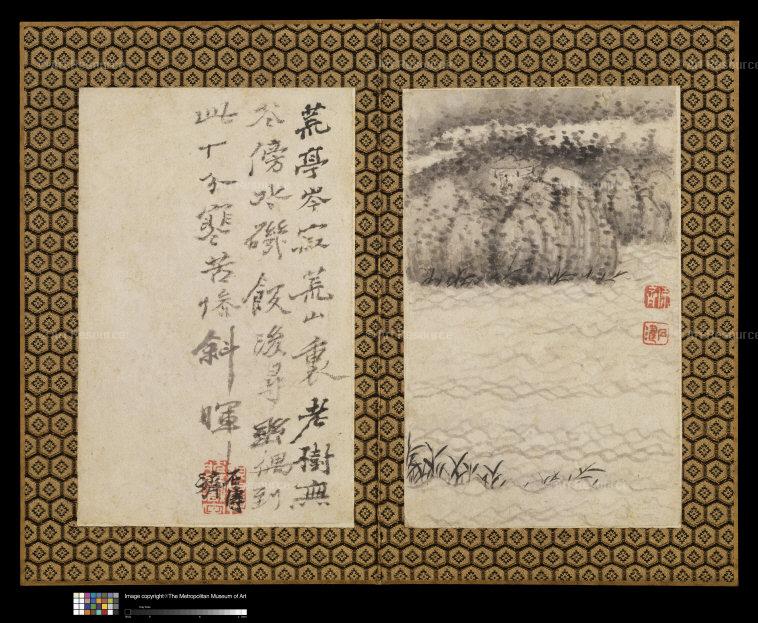 荒亭岑寂荒山裏老樹無
花傍水磯飯後尋幽偶到
此十分寒苦慘斜暉
石濤
濟
Image copyright © The Metropolitan Museum of Art